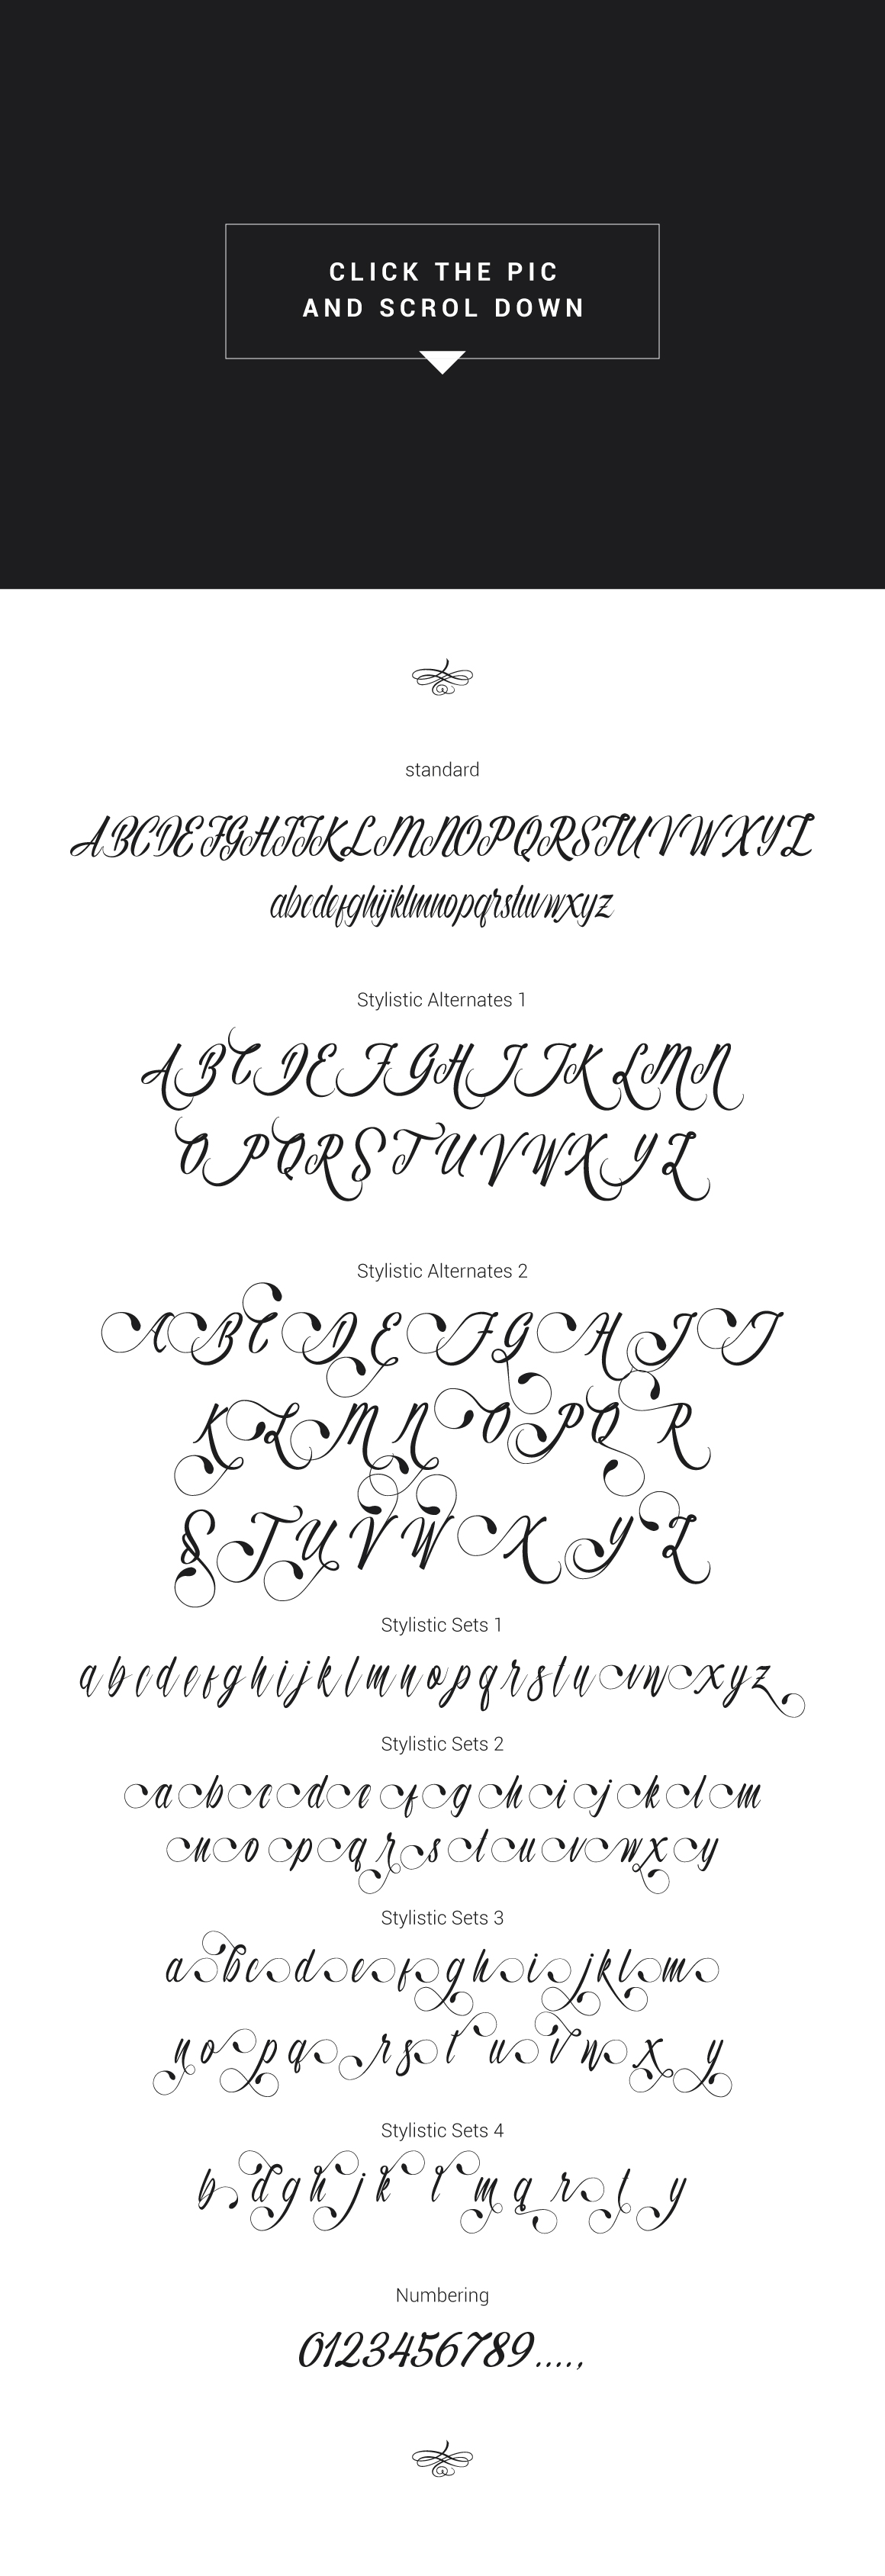 CLICK THE PIC
AND SCROL DOWN
standard
ABCDEFGHIJKLMNOPQRSTUVWXYZ
abcdefghijklmnopqrstuvwxyz
Stylistic Alternates 1
ABCDEFGHIJKLMN
OPQRSTUVWXYZ
Stylistic Alternates 2
ABCDEFGHIJ
KLMNOPQR
STUVWXYZ
Stylistic Sets 1
abcdefghijklmnopqrstuvwxyz
Stylistic Sets 2
abcdefghijklm
nopqrstuvwxy
Stylistic Sets 3
abcdefghijklm
nopqrstuvwxy
Stylistic Sets 4
bdghjklmqrty
Numbering
0123456789....,